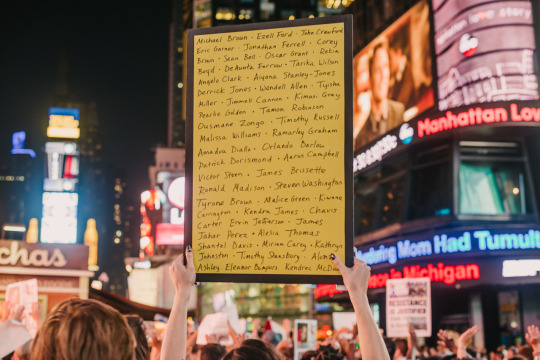 Michael Brown · Ezell Ford · John Crawford
Eric Garner · Jonathan Ferrell · Corey
Brown · Sean Bell · Oscar Grant · Rekia
Boyd · DeAunta Farrow · Tarika Wilson
Angelo Clark · Aiyana Stanley-Jones
Derrick Jones · Wendell Allen · Tyisha
Miller · Jimmell Cannon · Kimani Gray
Pearlie Golden · Tamon Robinson
Ousmane Zongo · Timothy Russell
Malissa Williams · Ramarley Graham
Amadou Diallo · Orlando Barlow
Patrick Dorismond · Aaron Campbell
Victor Steen · James Brissette
Ronald Madison · Steven Washington
Tyrone Brown · Malice Green · Kiwane
Carrington · Kendra James · Chavis
Carter · Ervin Jefferson · James
Jahar Perez · Alesia Thomas
Shantel Davis · Miriam Carey · Kathryn
Johnston · Timothy Stansbury · Alonzo
Ashley · Eleanor Bumpurs · Kendrec McDa
a love story
Manhattan Love
Mom Had Tumult
in Michigan
chas
RESISTANCE
IS
JUSTIFIED